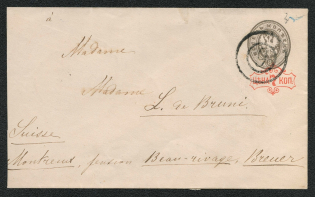 à
Madame
Madame
L. de Bruni.
Suisse
Montreux, pension Beau-rivage, Breuer
КОП.